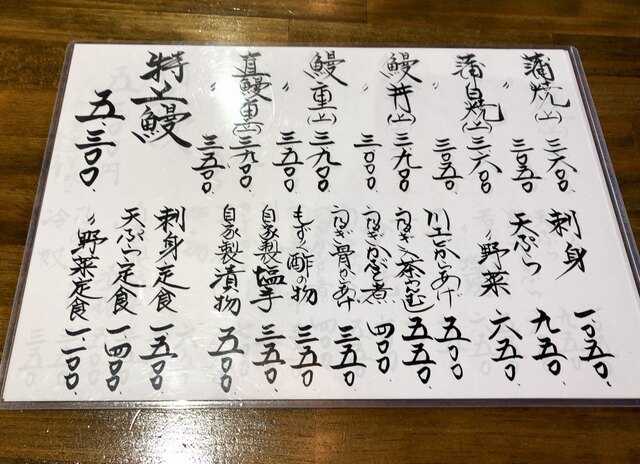 蒲焼(上) 三、六〇〇
〃 三、〇五〇
蒲白焼(上) 三、六〇〇
〃 三、〇五〇
鰻丼(上) 三、九〇〇
〃 三、〇〇〇
鰻重(上) 三、九〇〇
〃 三、五〇〇
直鰻重(上) 三、九〇〇
〃 三、五〇〇
特上鰻 五、三〇〇
刺身 一、〇五〇
天ぷら 九五〇
〃野菜 六五〇
川エビからあけ 五〇〇
うなぎ茶わんむし 五五〇
うなぎかぶと煮 四〇〇
うなぎ骨からあけ 三五〇
もずく酢の物 三五〇
自家製塩辛 三五〇
自家製漬物 五〇〇
刺身定食 一、五〇〇
天ぷら定食 一、四〇〇
〃野菜定食 一、一〇〇